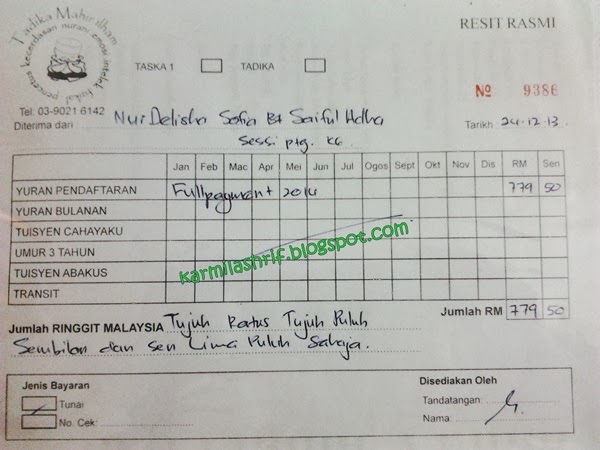 Tadika Mahir Ilham
pencetus kecerdasan nurani emosi intelek
RESIT RASMI
TASKA 1 TADIKA
No 9386
Tel: 03-9021 6142
Diterima dari Nur Delisha Sofia Bt Saiful Adha Tarikh 24.12.13.
Sessi ptg. K6
Jan Feb Mac Apr Mei Jun Jul Ogos Sept Okt Nov Dis RM Sen
YURAN PENDAFTARAN Full payment 2014 779 50
YURAN BULANAN
TUISYEN CAHAYAKU
UMUR 3 TAHUN
TUISYEN ABAKUS
TRANSIT
karmilashrif.blogspot.com
Jumlah RM 779 50
Jumlah RINGGIT MALAYSIA Tujuh Ratus Tujuh Puluh
Sembilan dan sen Lima Puluh Sahaja.
Jenis Bayaran Disediakan Oleh
Tunai Tandatangan:
No. Cek: Nama: